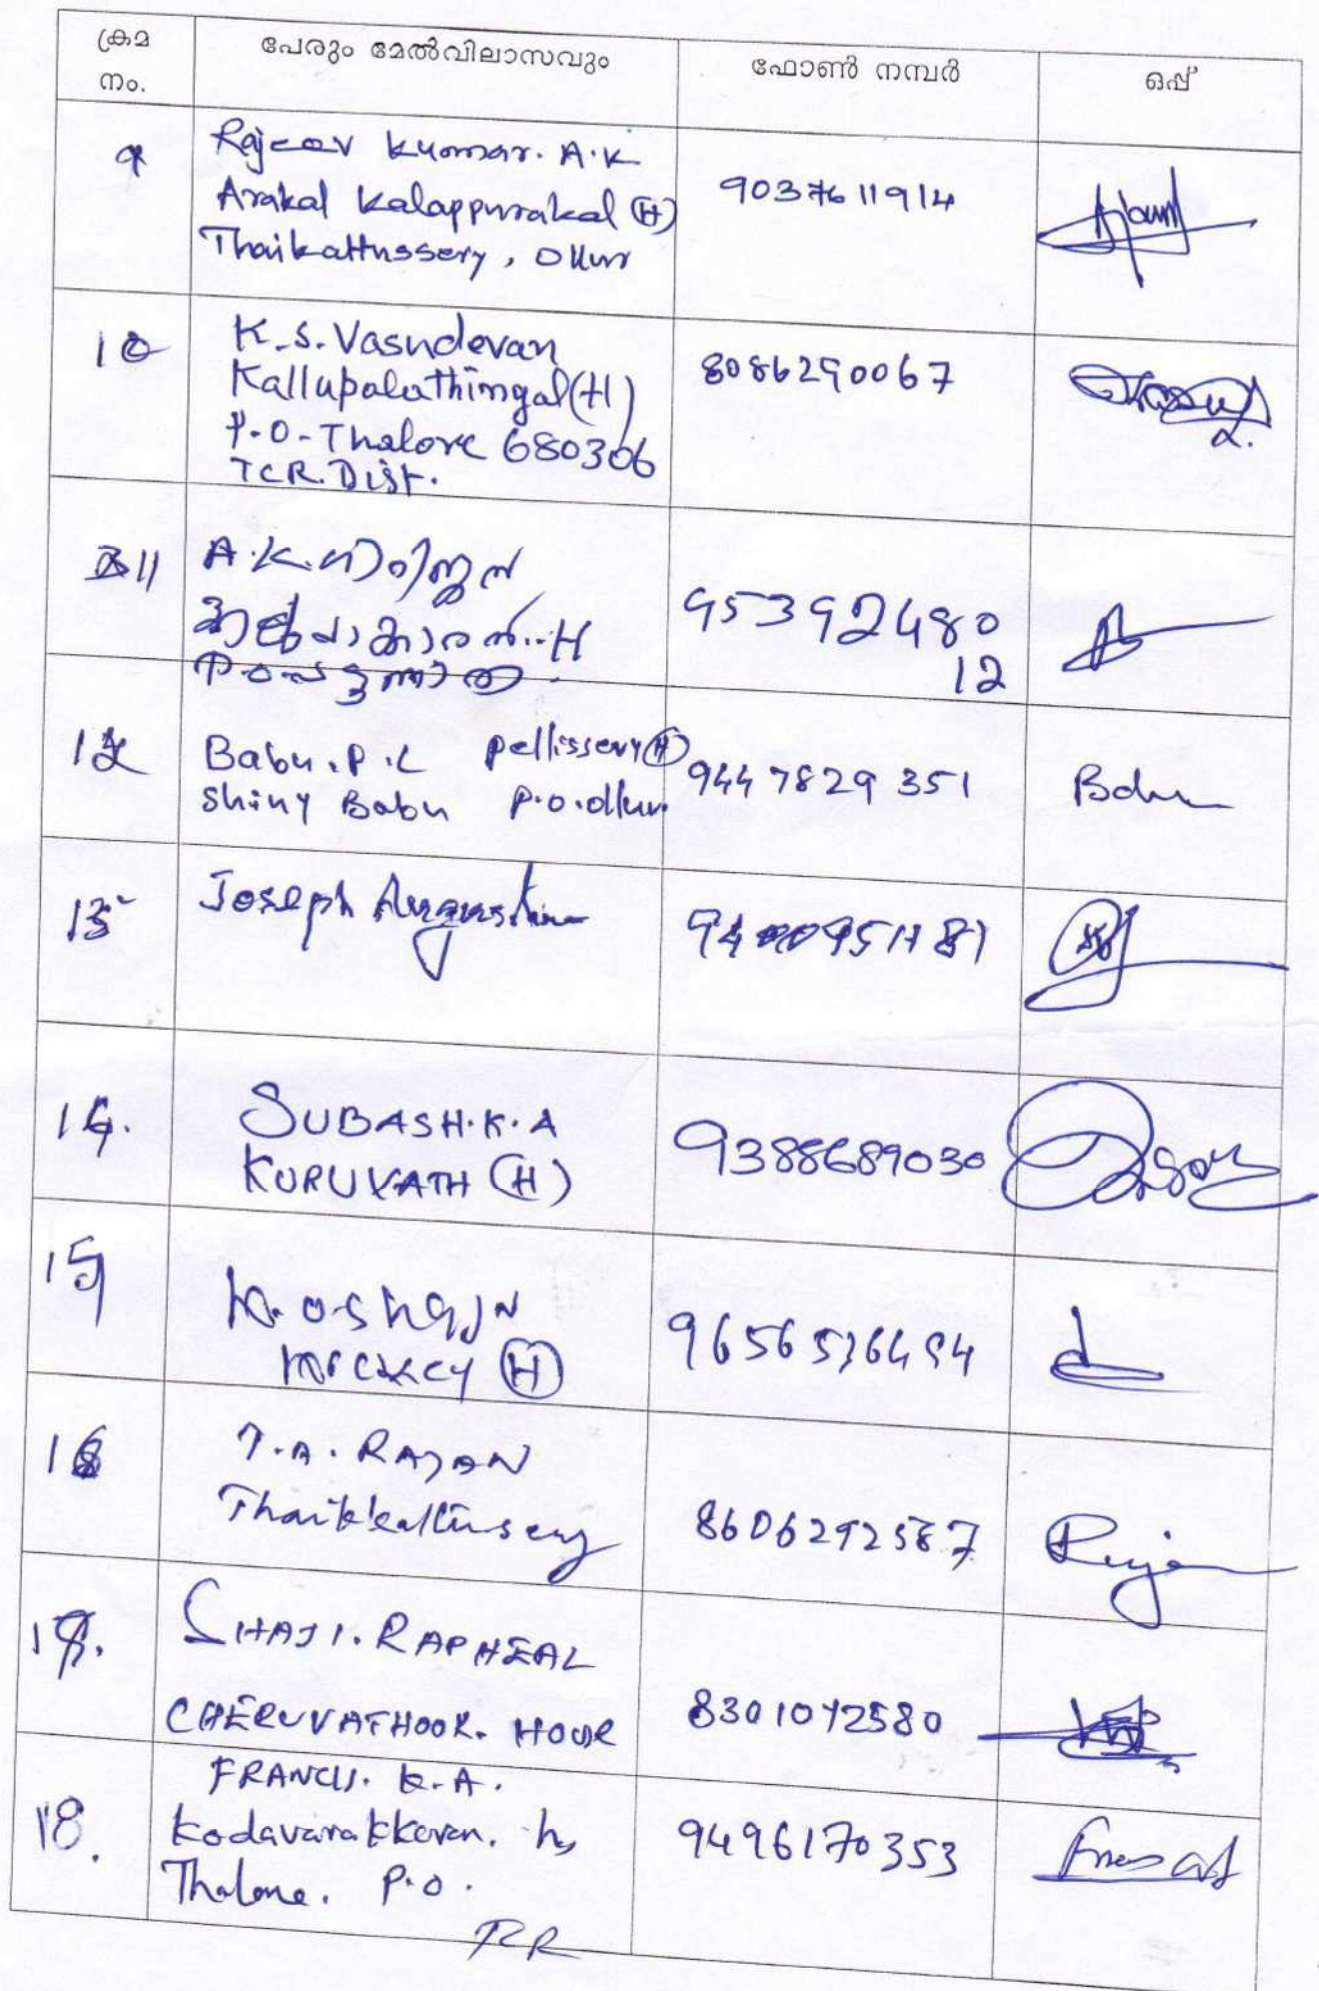 ക്രമ നം.
പേരും മേൽവിലാസവും
ഫോൺ നമ്പർ
ഒപ്പ്
9
Rajeev Kumar. A.K
Arakal Kalappurakal (H)
Thaikattussery, Ollur
9037611914
10
K.S. Vasudevan
Kallupalathingal (H)
P.O-Thalore 680306
TCR. Dist.
8086290067
11
A.K.
H
95392480
12
12
Babu. P.L Pellissery (H)
Shiny Babu P.O. Ollur.
9447829351
Babu
13
Joseph Augustine
14.
SUBASH.K.A
KURUVATH (H)
9388689030
15
(H)
16
T.A. RAJAN
Thaikkattussery
8606292587
17.
SHAJI. RAPHEAL
CHERUVATHOOR. HOUSE
8301042580
18.
FRANCIS. K.A.
Kodavarakkaran. h,
Thalore. P.O.
TCR
9496170353